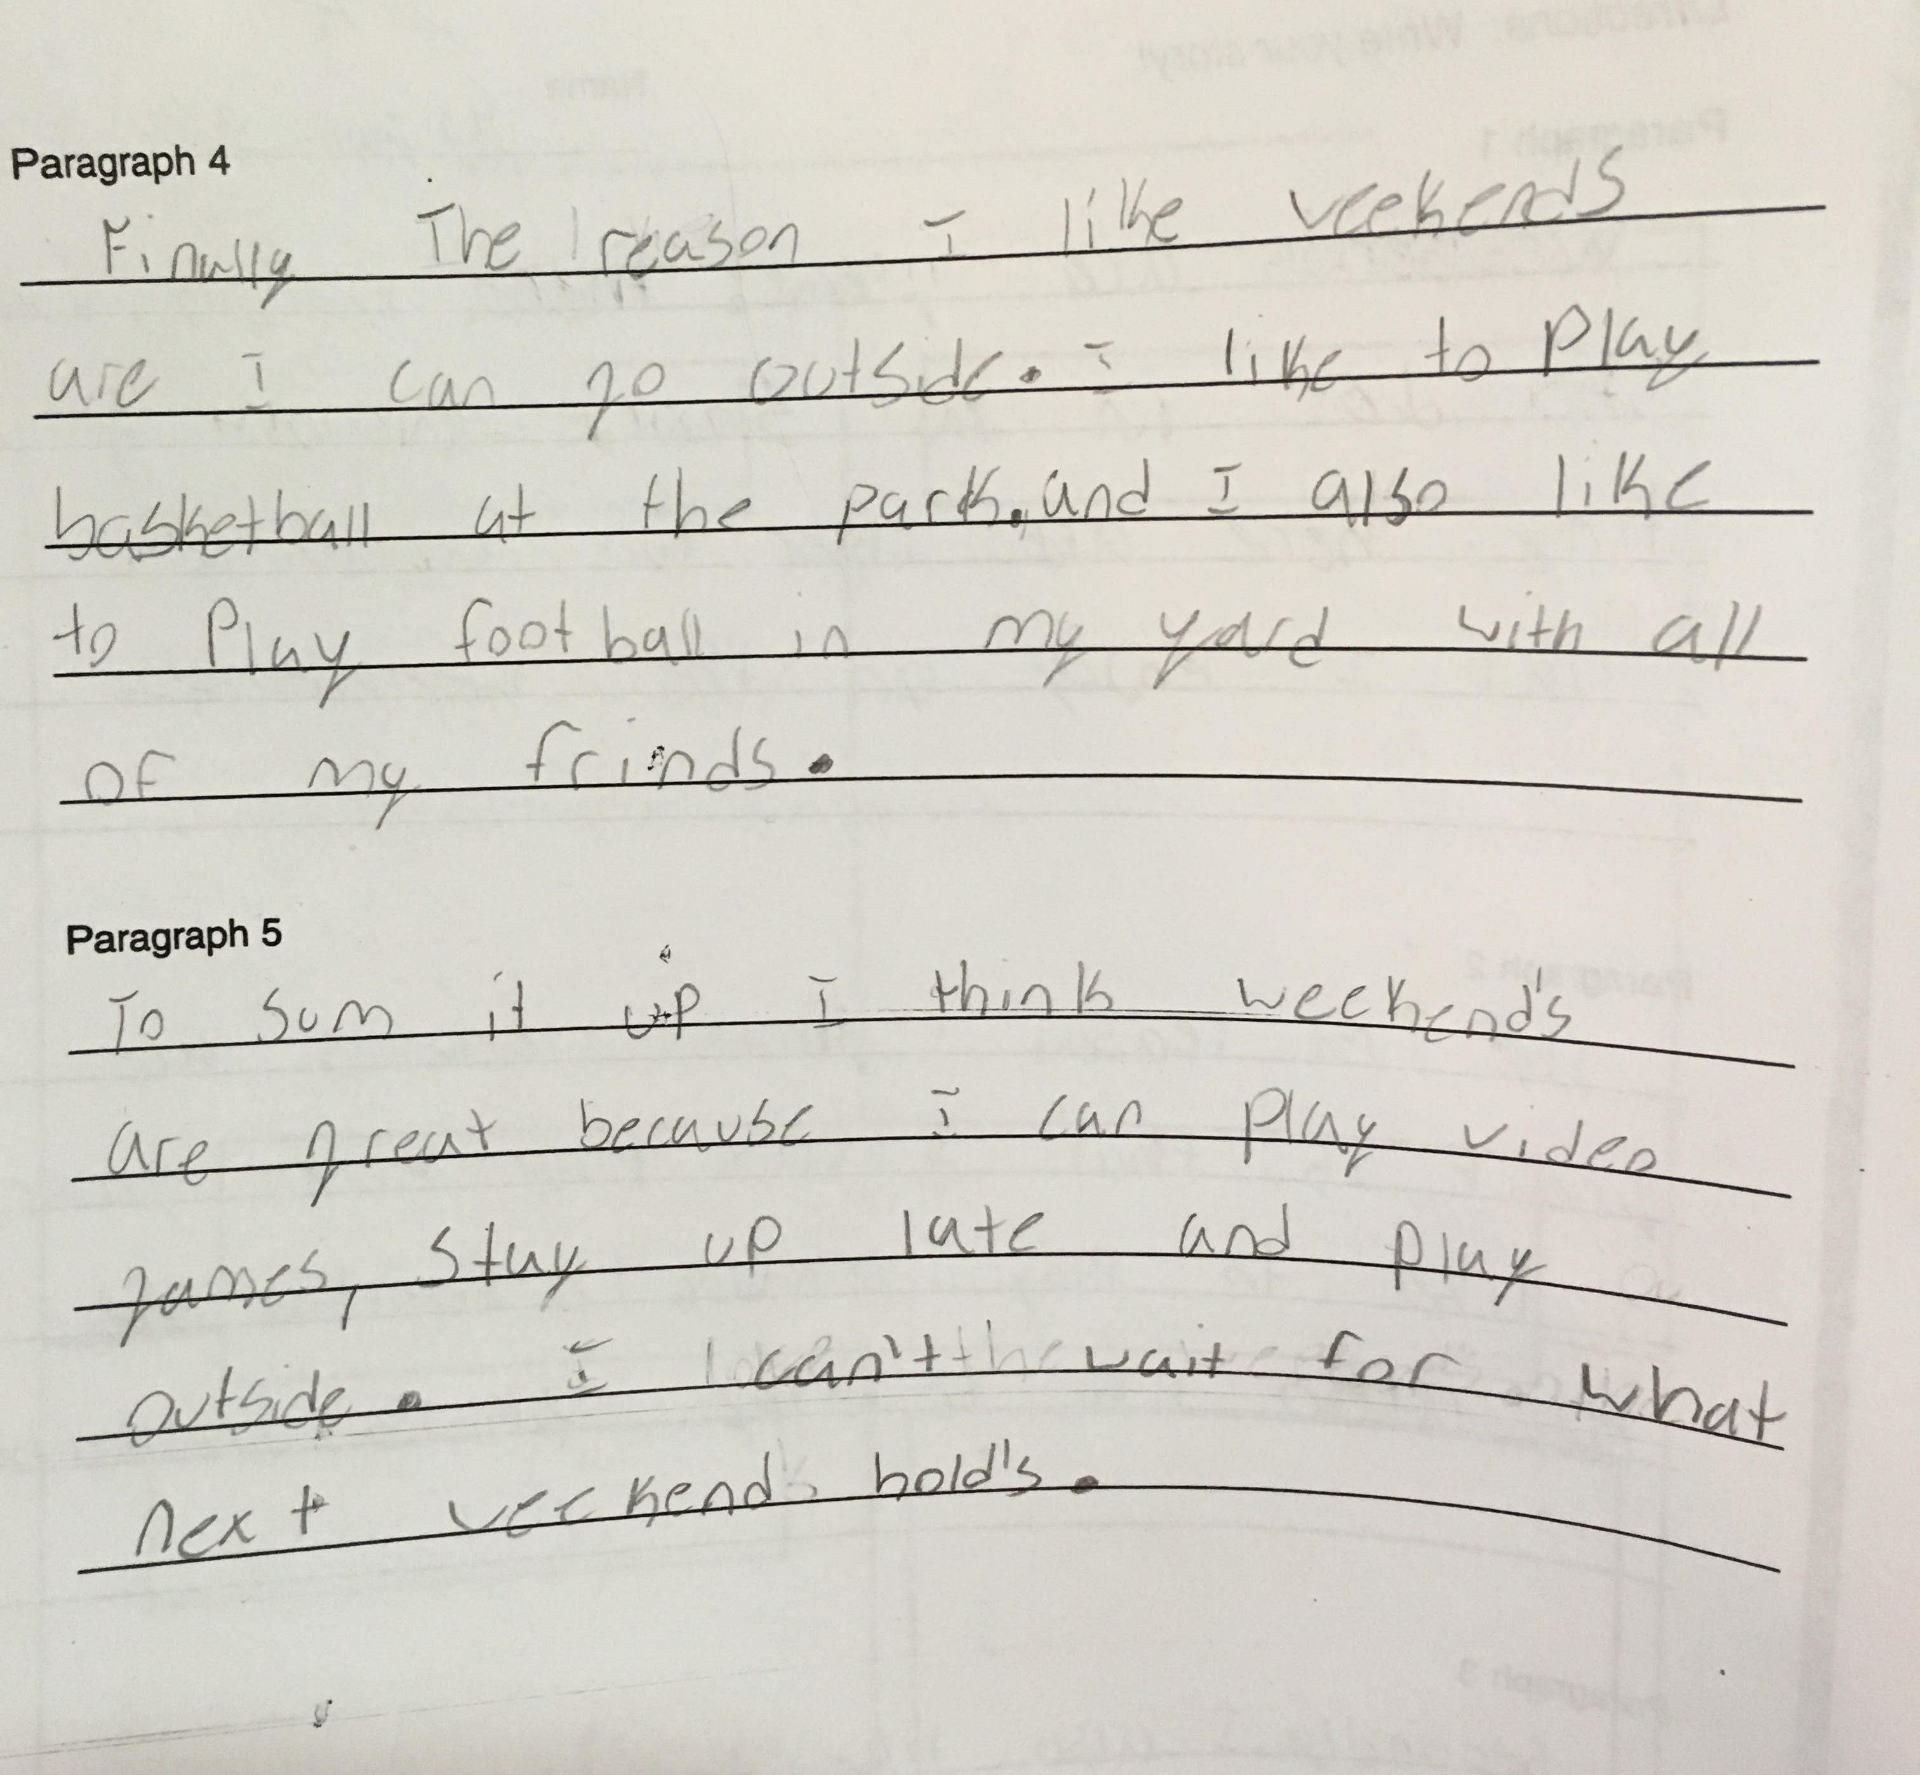 Paragraph 4
Finally The reason I like weekends
are I can go outside. I like to Play
basketball at the park, and I also like
to Play football in my yard with all
of my frinds.
Paragraph 5
To sum it up I think weekend's
are great because I can play video
games, stay up late and play
outside. I can't wait for what
next weekend hold's.